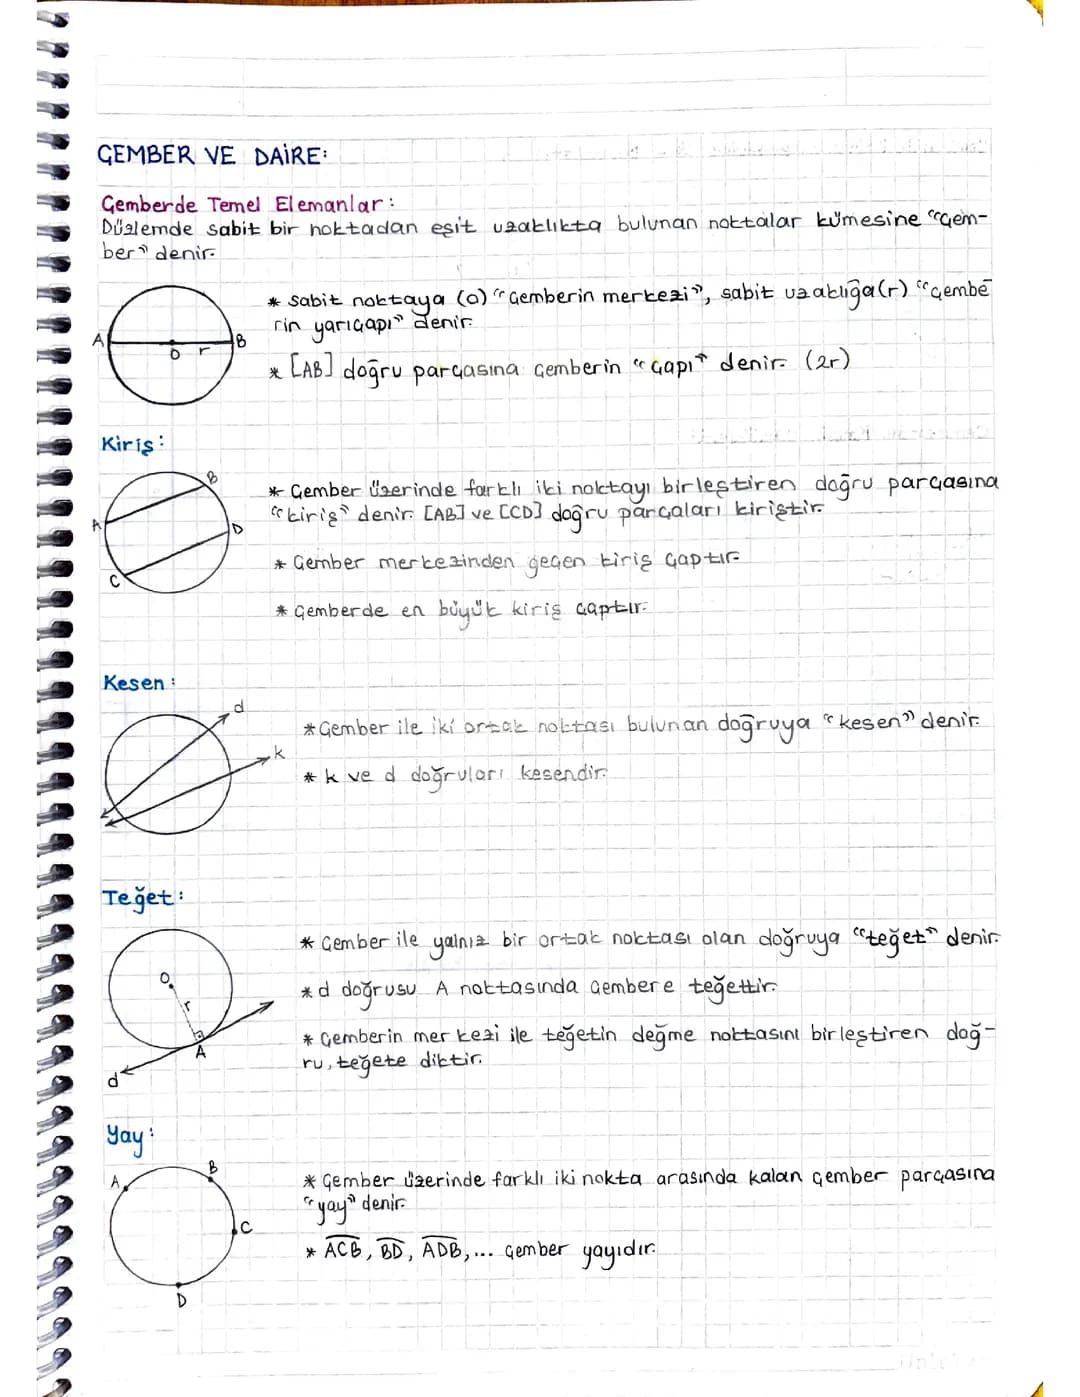 ÇEMBER VE DAİRE:
Çemberde Temel Elemanlar:
Düzlemde sabit bir noktadan eşit uzaklıkta bulunan noktalar kümesine "çem-
ber" denir.
* Sabit noktaya (O) "çemberin merkezi", sabit uzaklığa (r) "çembe
rin yarıçapı" denir.
A
O
r
B
* [AB] doğru parçasına çemberin "çapı" denir. (2r)
Kiriş:
B
A
D
C
* Çember üzerinde farklı iki noktayı birleştiren doğru parçasına
"kiriş" denir. [AB] ve [CD] doğru parçaları kiriştir.
* Çember merkezinden geçen kiriş çaptır.
* Çemberde en büyük kiriş çaptır.
Kesen:
d
k
* Çember ile iki ortak noktası bulunan doğruya "kesen" denir.
* k ve d doğruları kesendir.
Teğet:
O
r
A
d
* Çember ile yalnız bir ortak noktası olan doğruya "teğet" denir.
* d doğrusu A noktasında çembere teğettir.
* Çemberin merkezi ile teğetin değme noktasını birleştiren doğ-
ru, teğete diktir.
Yay:
A
B
C
D
* Çember üzerinde farklı iki nokta arasında kalan çember parçasına
"yay" denir.
* ACB, BD, ADB,... çember yayıdır.